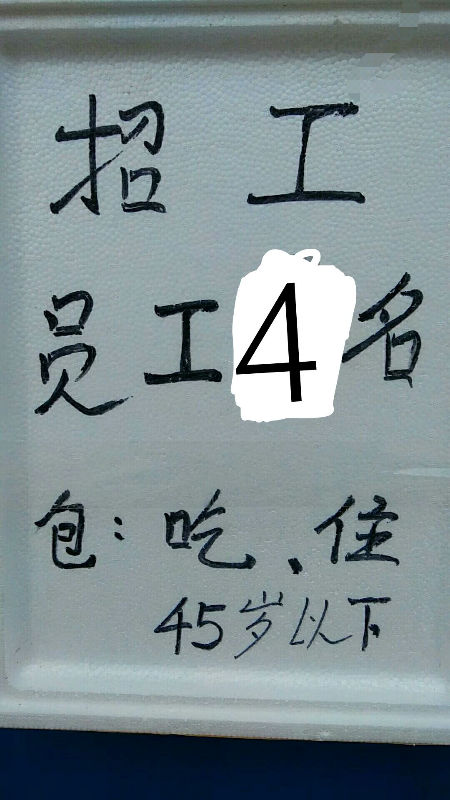 招工
员工4名
包：吃、住
45岁以下